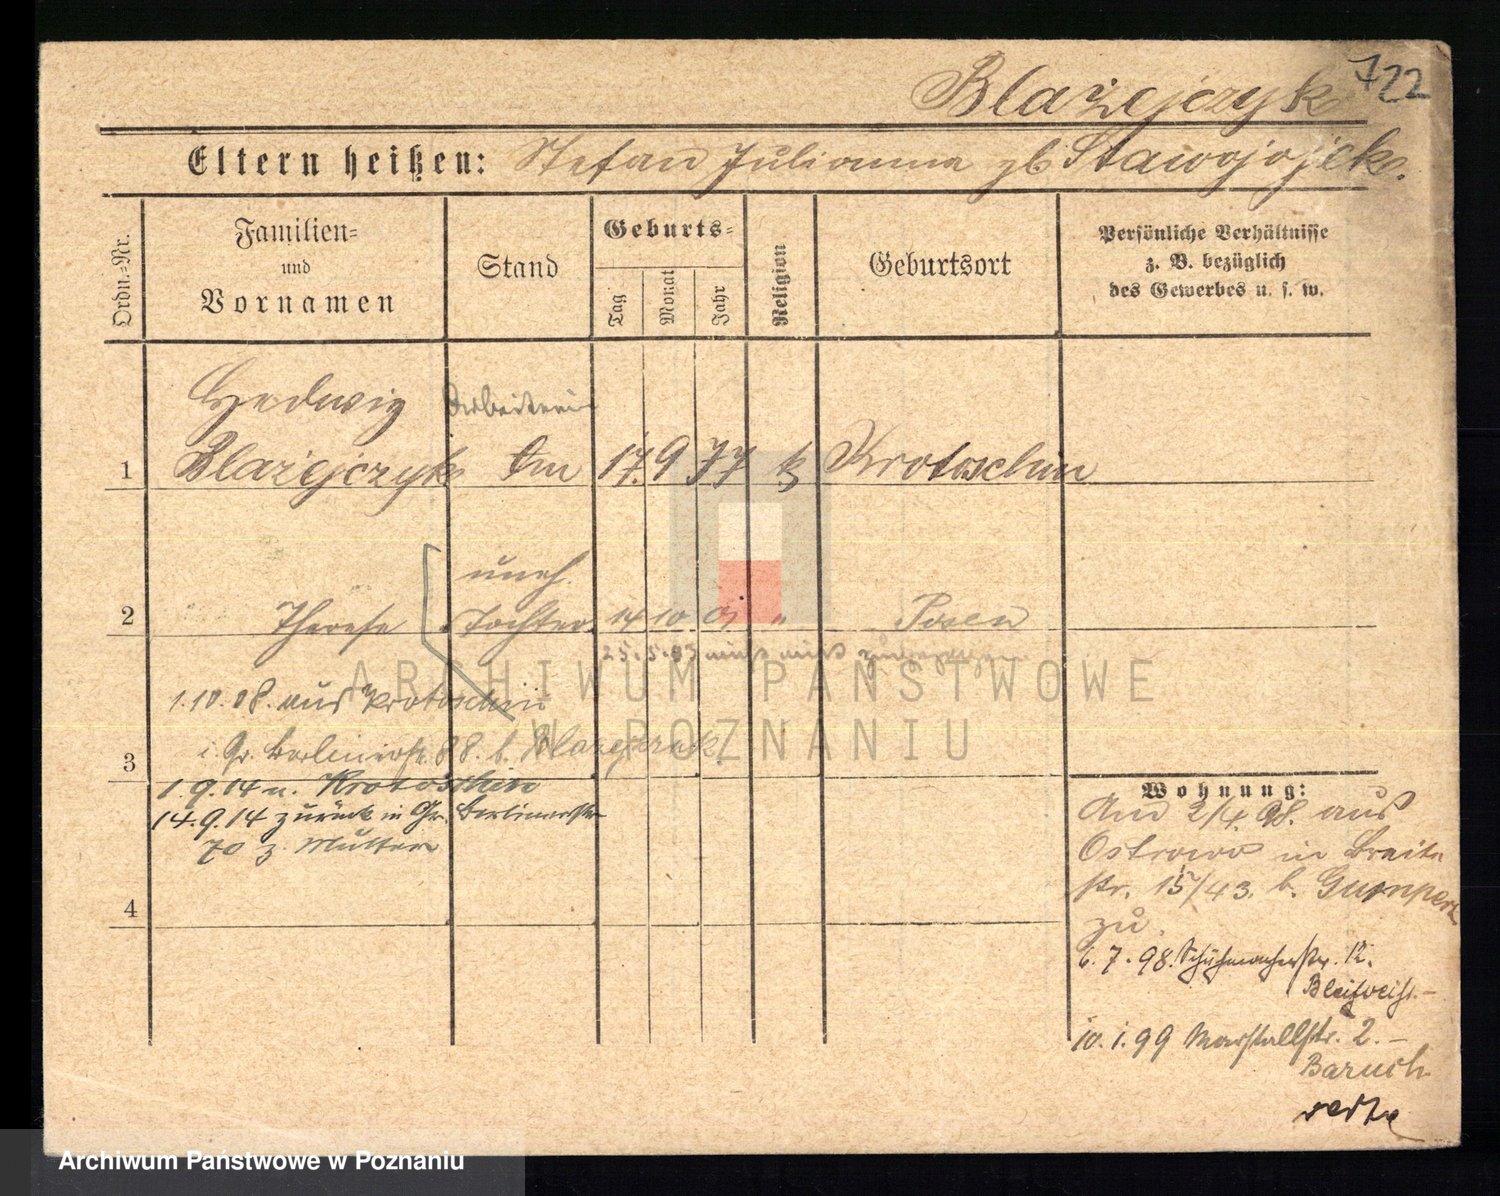 722
Blażejczyk
Eltern heißen: Stefan Julianna gb
Ordn.=Nr.
Familien=
und
Vornamen
Stand
Geburts=
Tag
Monat
Jahr
Religion
Geburtsort
Persönliche Verhältnisse
z. B. bezüglich
des Gewerbes u. s. w.
Hedwig Arbeiterin
1 Blażejczyk 17. 9 77 k Krotoschin
uneh.
2 Therese Tochter 14 10 " Posen
25.5.03
1.10.08. aus Krotoschin
3 i. Gr. Berlinerstr. 88. b. Blazejczyk.
1.9.14 n. Krotoschin
14.9.14 zurück in Gr. Berlinerstr
70 z. Mutter
4
Wohnung:
Am 2/4. 98. aus
Ostrowo in Breite
str. 15/43. b. Gumpert
zu.
6.7.98. Schuhmacherstr. 12.
Bleiweiss.–
10.1.99 Marstallstr. 2.–
Baruch
ARCHIWUM PAŃSTWOWE
W POZNANIU
Archiwum Państwowe w Poznaniu